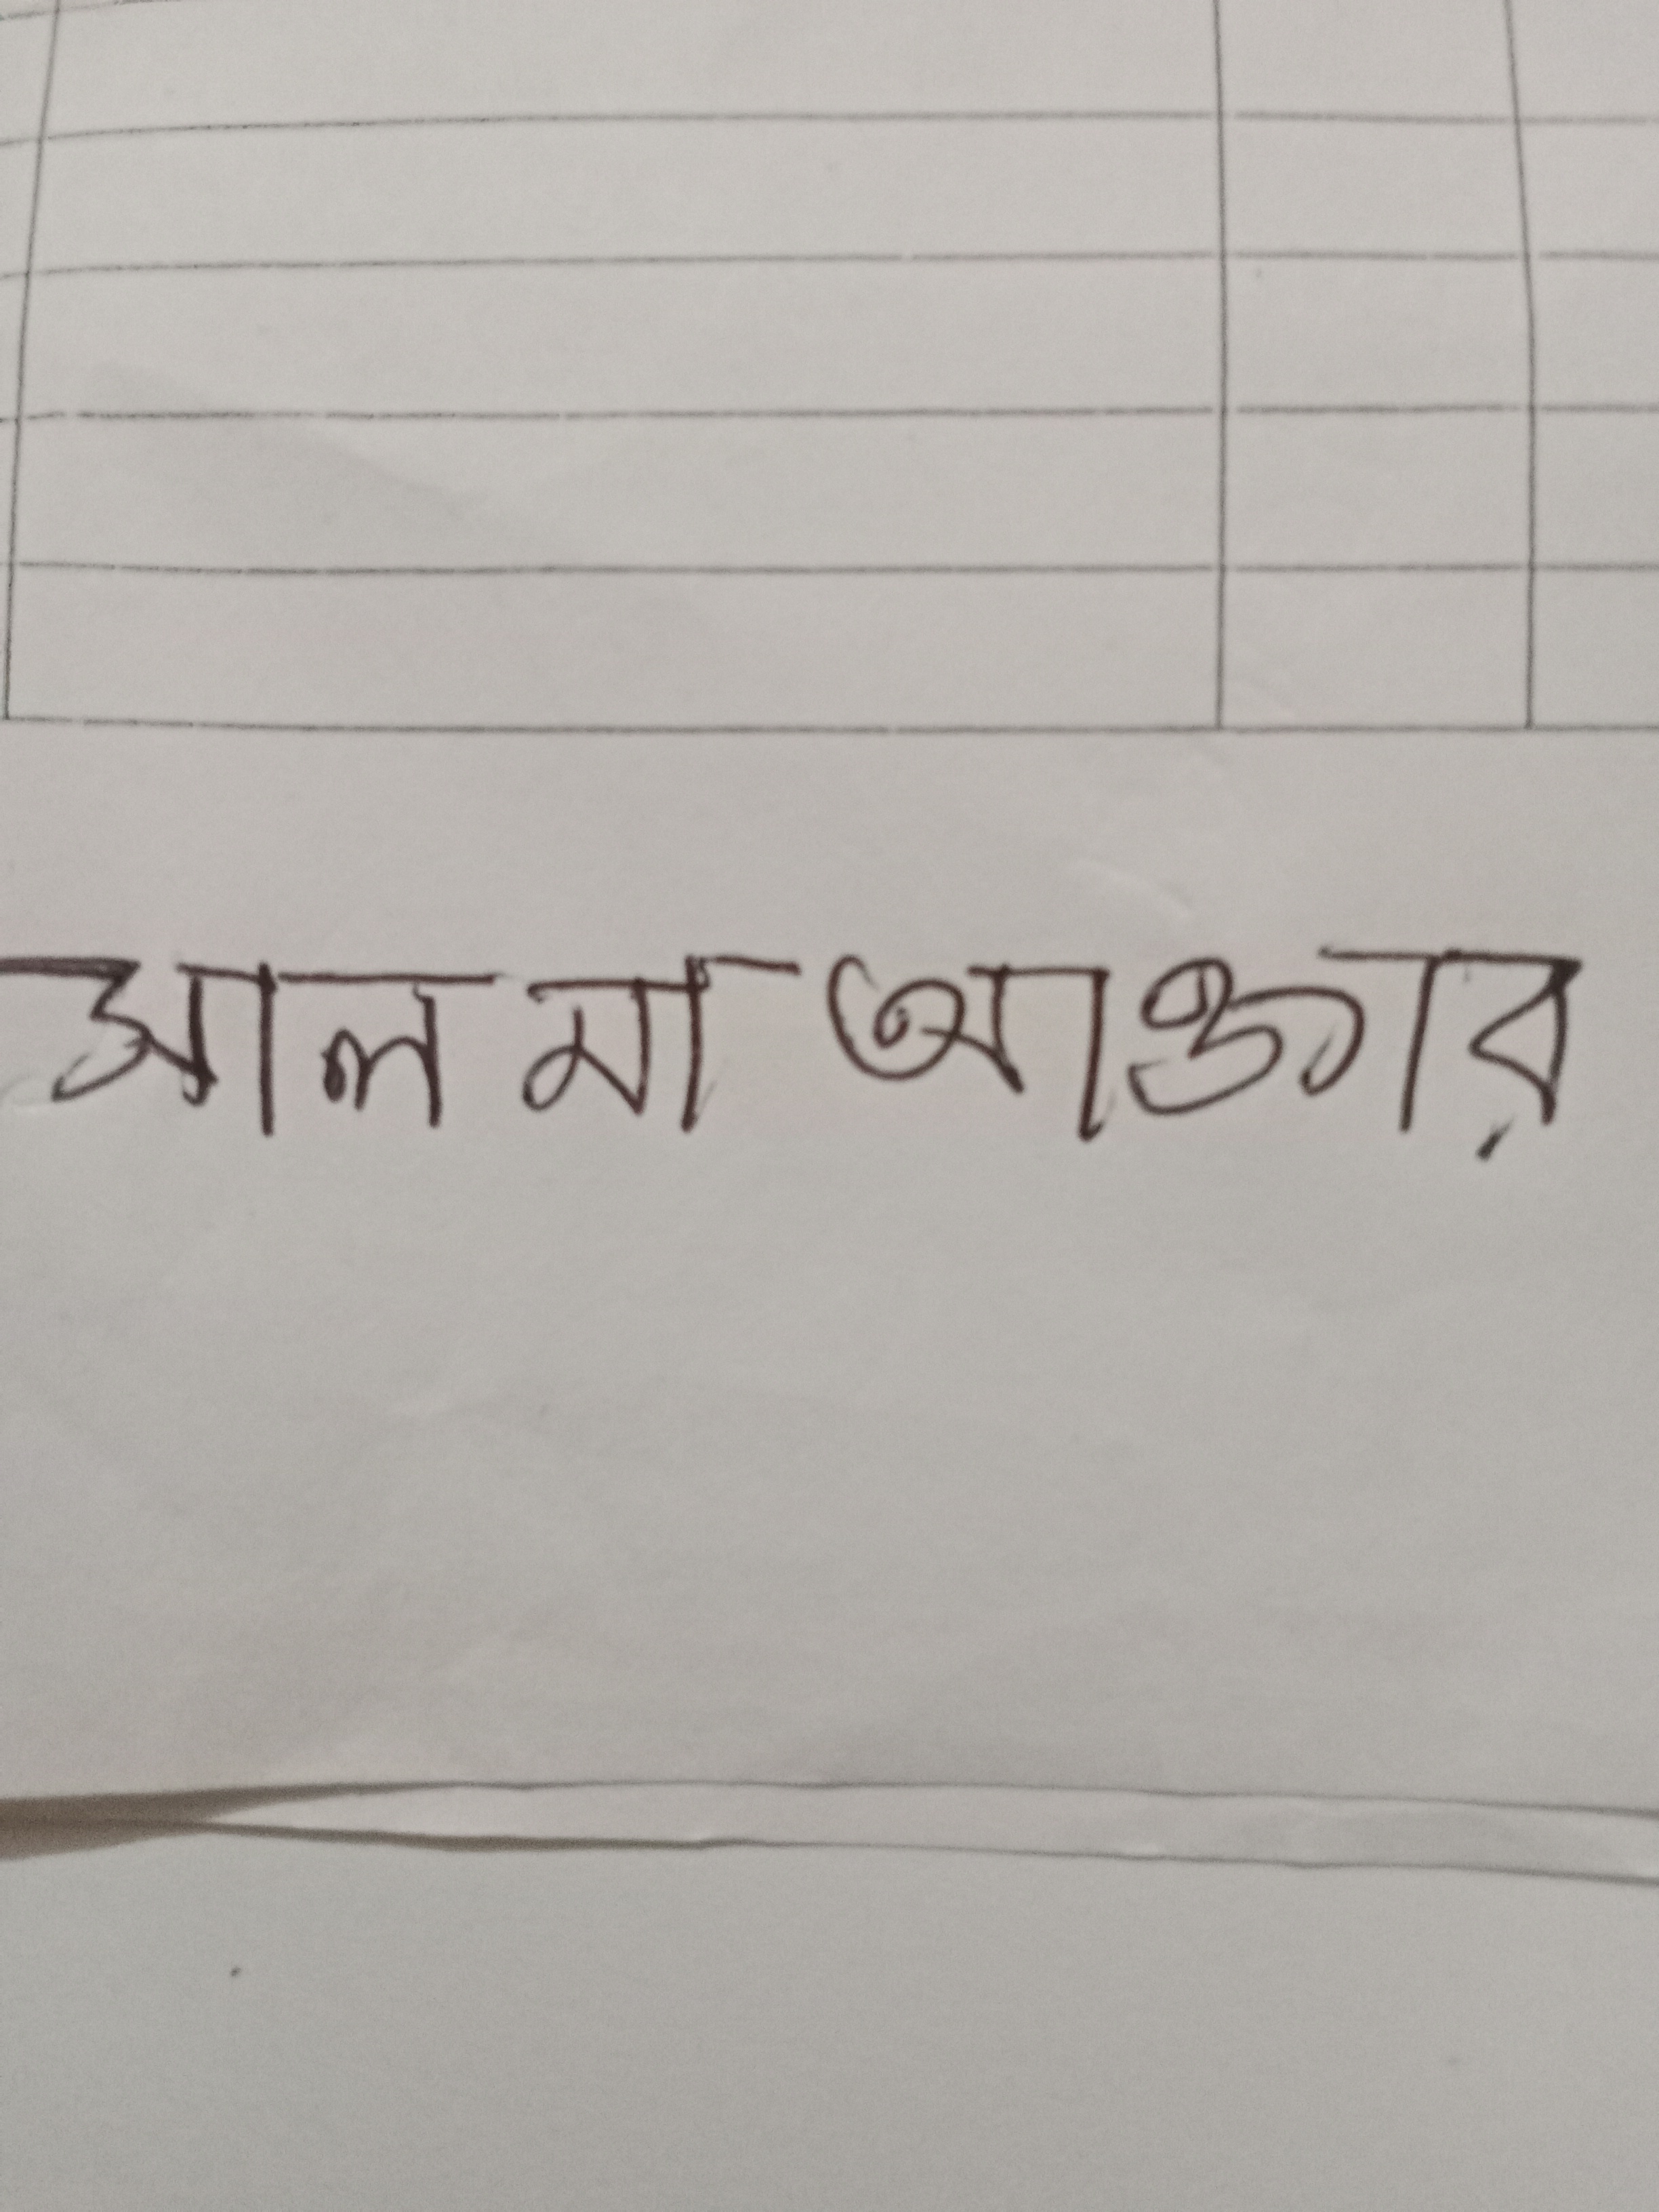 সালমা আক্তার